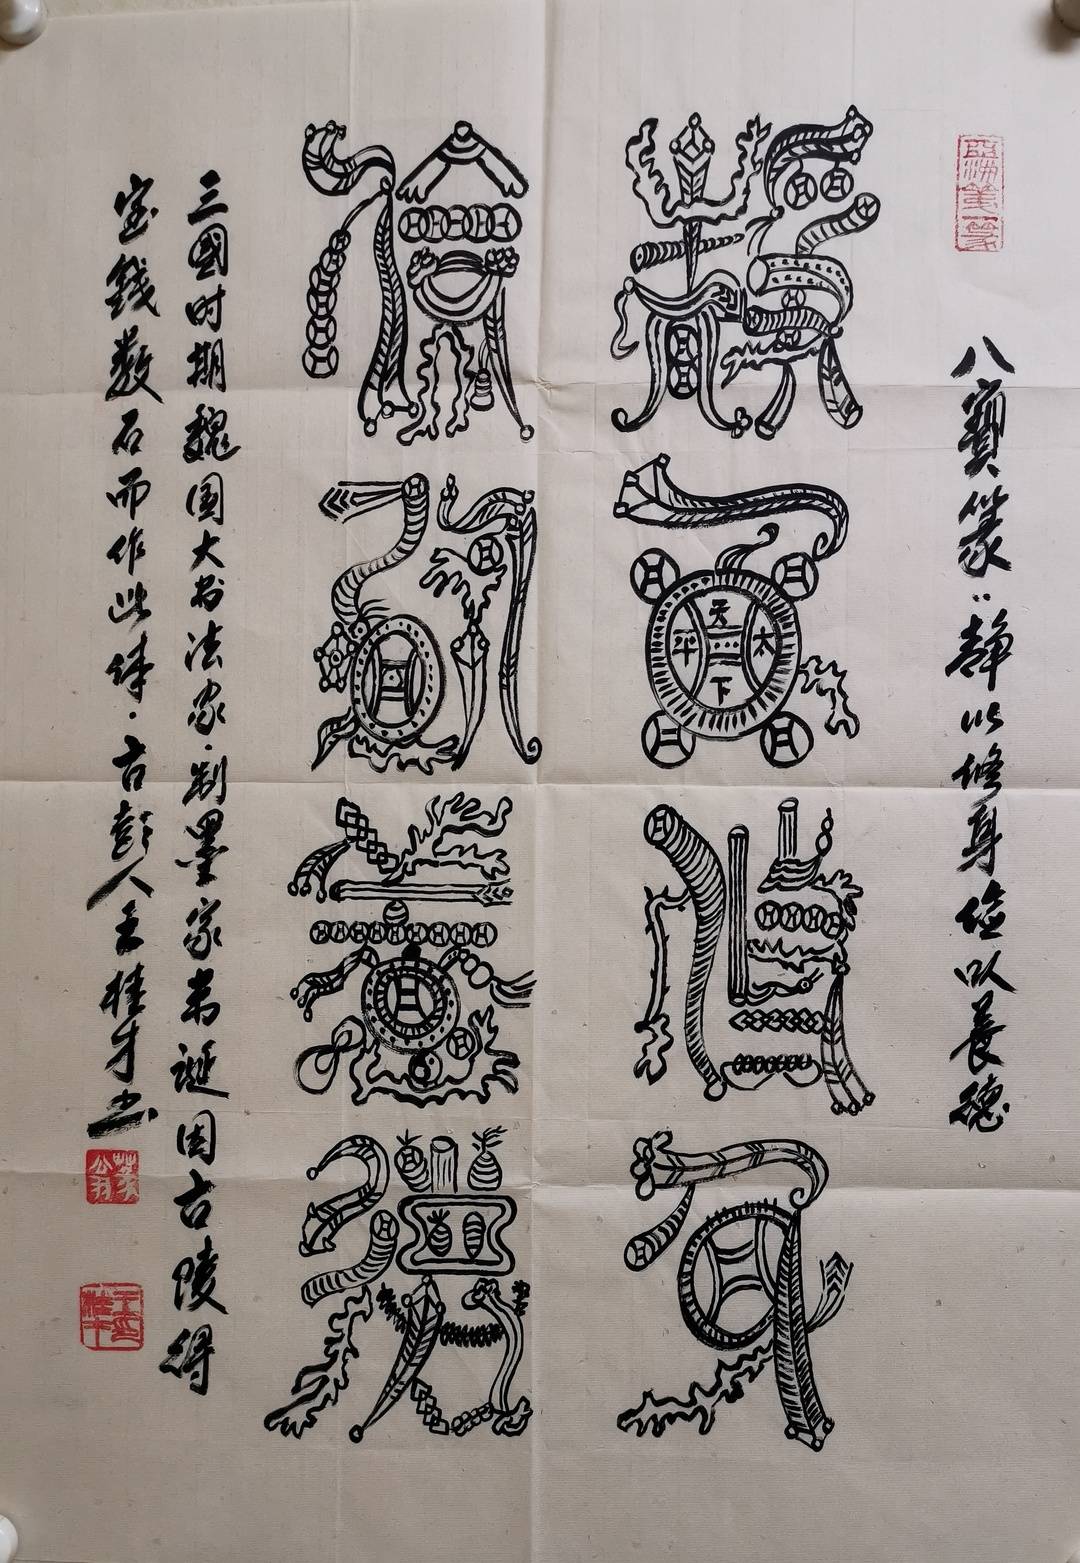 八寶篆：静以修身俭以養德
靜以修身
天下太平
儉以養德
三國时期魏国大书法家.制墨家韦诞因古陵得
宝钱数石而作此体.古彭人王桂才书